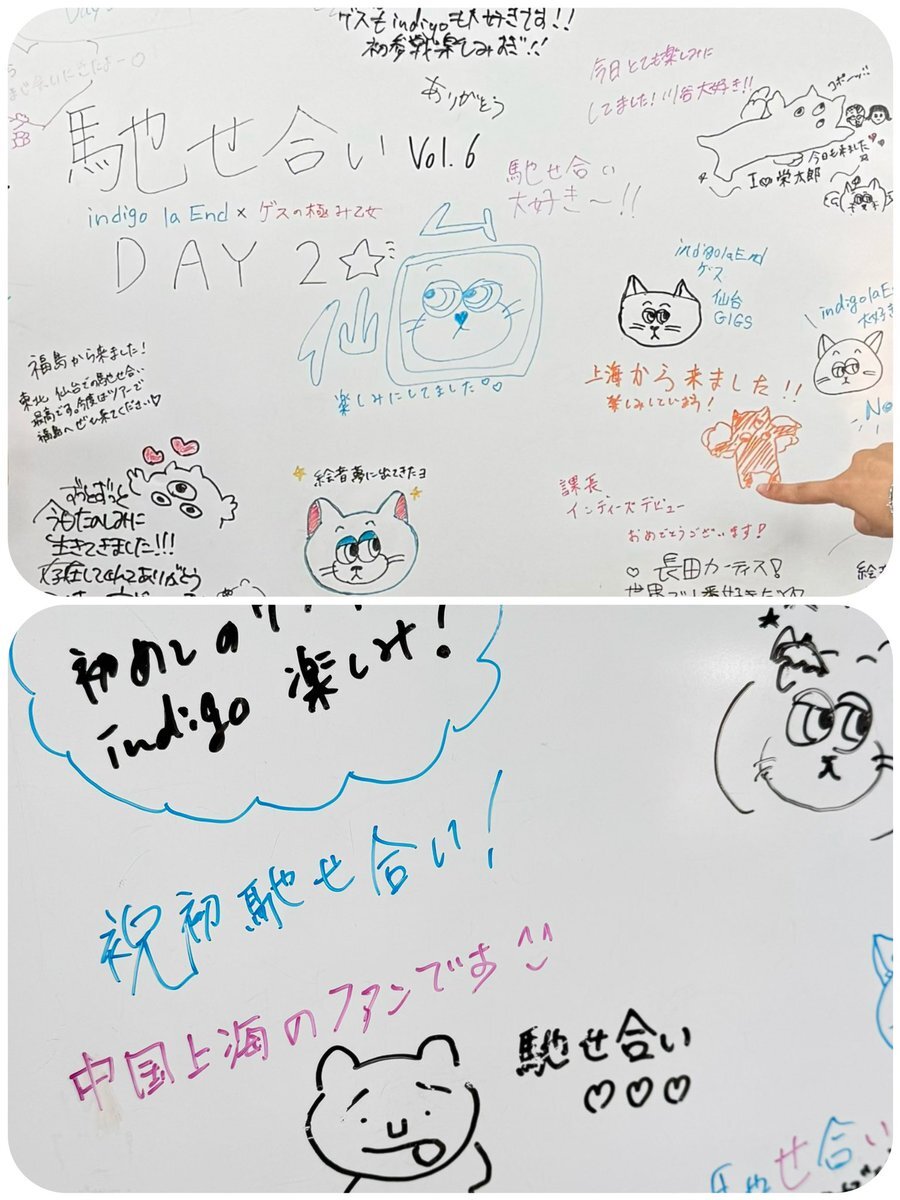 ゲスもindigoも大好きです!!
初参戦楽しみます!!
ありがとう
馳せ合い Vol.6
indigo la End × ゲスの極み乙女
DAY 2☆
今日とても楽しみに
してました!川谷大好き!!
今日も来ました
I♡栄太郎
馳せ合い
大好き〜!!
仙台
楽しみにしてました♡♡
indigo la End
ゲス
仙台
GIGS
indigo la En
大好き
福島から来ました!
東北 仙台での馳せ合い
最高です。今度はツアーで
福島へぜひ来てください♡
上海から来ました!!
楽しみしています!
絵者夢に出てきたヨ
ずっとずっと
今日たのしみに
生きてきました!!!
存在してくれてありがとう
課長
インディーズデビュー
おめでとうございます!
♡長田カーティス!
indigo 楽しみ!
祝初馳せ合い!
中国上海のファンです
馳せ合い
♡♡♡
馳せ合い